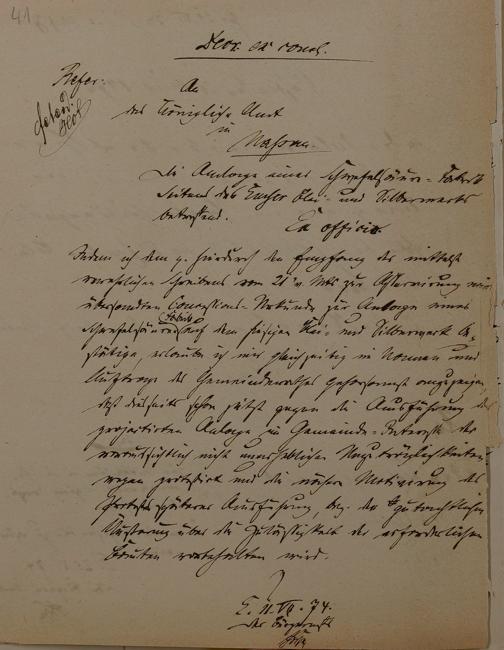 41
Decr. ex concl.
Refer:
An
das Königliche Amt
in
Nassau.
Die Anlage einer Schwefelsäure-Fabrik
Seitens des Emser Blei- und Silberwerks
betreffend.
Ex officio.
Indem ich dem p. hierdurch den Empfang des mittelst
verehrlichen Schreibens vom 21 v. Mts zur
übersandten Concessions-Urkunde zur Anlage einer
Schwefelsäure Fabrik auf dem hiesigen Blei- und Silberwerk be-
stätige, erlaube ich mir gleichzeitig im Namen und
Auftrage des Gemeinderathes gehorsamst anzuzeigen,
daß diesseits schon jetzt gegen die Ausführung der
projectirten Anlage im Gemeinde-Interesse der
voraussichtlich nicht unerheblichen
wegen protestirt und die nähere Motivirung des
Protestes späterer Ausführung, bez. der gutachtlichen
Äußerung über die Zulässigkeit der erforderlichen
Bauten vorbehalten wird.
E. 11. VII. 74.
Der Bürgermstr